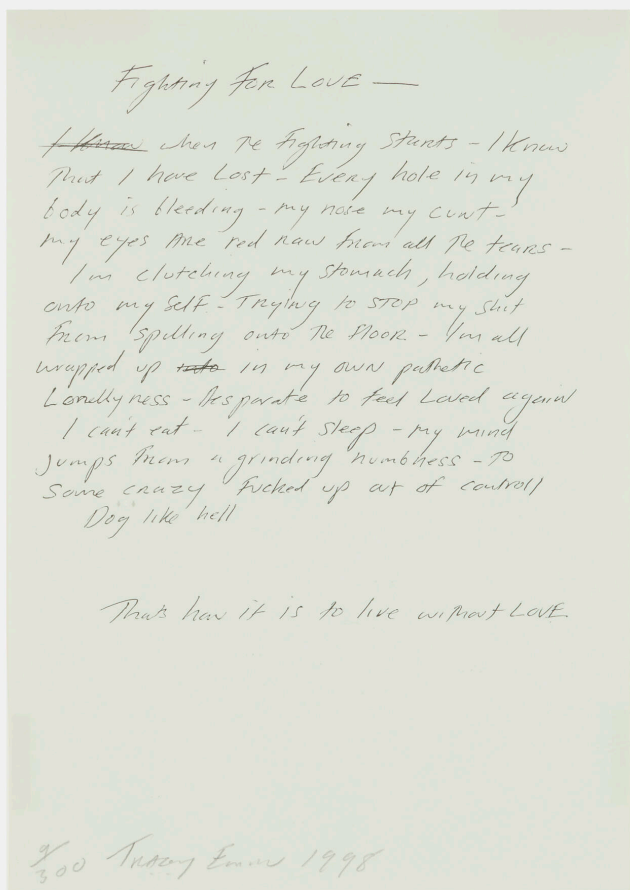 Fighting For Love —
I Know when The Fighting Starts - I Know
That I have Lost - Every hole in my
body is bleeding - my nose my cunt -
my eyes Are red raw From all The tears -
I'm clutching my stomach, holding
onto my Self - Trying to STOP my shit
From spilling onto The Floor - I'm all
wrapped up into in my own pathetic
Lonellyness - Desparate to Feel Loved again
I can't eat - I can't sleep - my mind
Jumps From a grinding numbness - To
Some crazy Fucked up out of controll
Dog like hell
Thats how it is to live without LOVE
9/300 Tracey Emin 1998